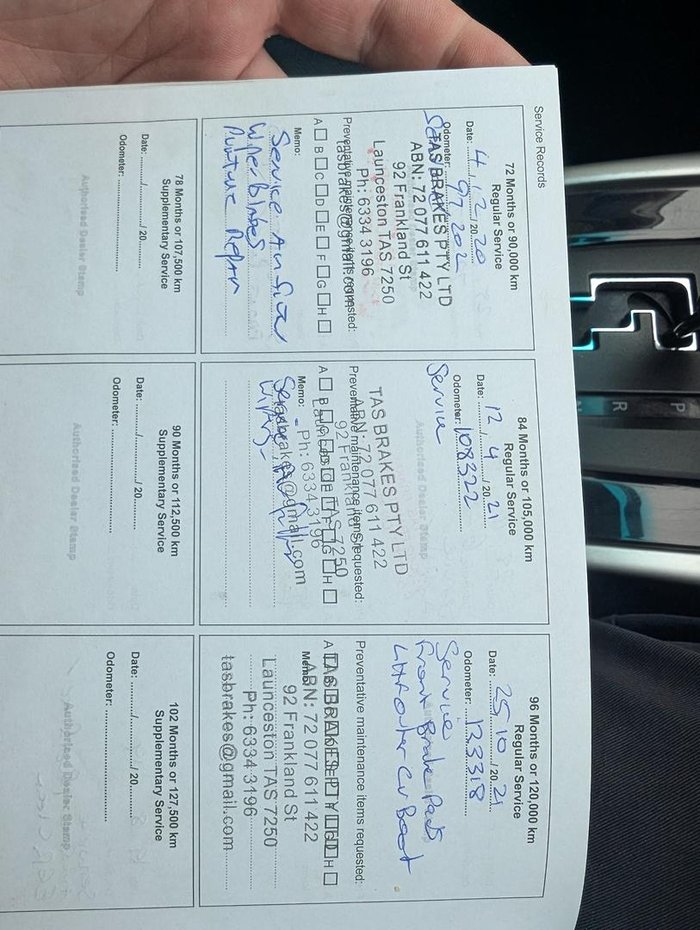 Service Records
72 Months or 90,000 km
Regular Service
Date: 4 / 12 / 20 20
Odometer: 97 202
Service
TAS BRAKES PTY LTD
ABN: 72 077 611 422
92 Frankland St
Launceston TAS 7250
Ph: 6334 3196
tasbrakes@gmail.com
Preventative maintenance items requested:
A B C D E F G H
Memo:
Service Air filter
Wiper Blades
Puncture Repair
84 Months or 105,000 km
Regular Service
Date: 12 / 4 / 20 21
Odometer: 108322
Service
Authorised Dealer Stamp
TAS BRAKES PTY LTD
ABN: 72 077 611 422
92 Frankland St
Launceston TAS 7250
Ph: 6334 3196
tasbrakes@gmail.com
Preventative maintenance items requested:
A B C D E F G H
Memo:
96 Months or 120,000 km
Regular Service
Date: 25 / 10 / 20 21
Odometer: 123318
Service
Front Brake Pads
Outer CV Boot
Preventative maintenance items requested:
A B C D E F G H
Memo:
TAS BRAKES PTY LTD
ABN: 72 077 611 422
92 Frankland St
Launceston TAS 7250
Ph: 6334 3196
tasbrakes@gmail.com
78 Months or 107,500 km
Supplementary Service
Date: / / 20
Odometer:
Authorised Dealer Stamp
90 Months or 112,500 km
Supplementary Service
Date: / / 20
Odometer:
Authorised Dealer Stamp
102 Months or 127,500 km
Supplementary Service
Date: / / 20
Odometer:
Authorised Dealer Stamp
P
R